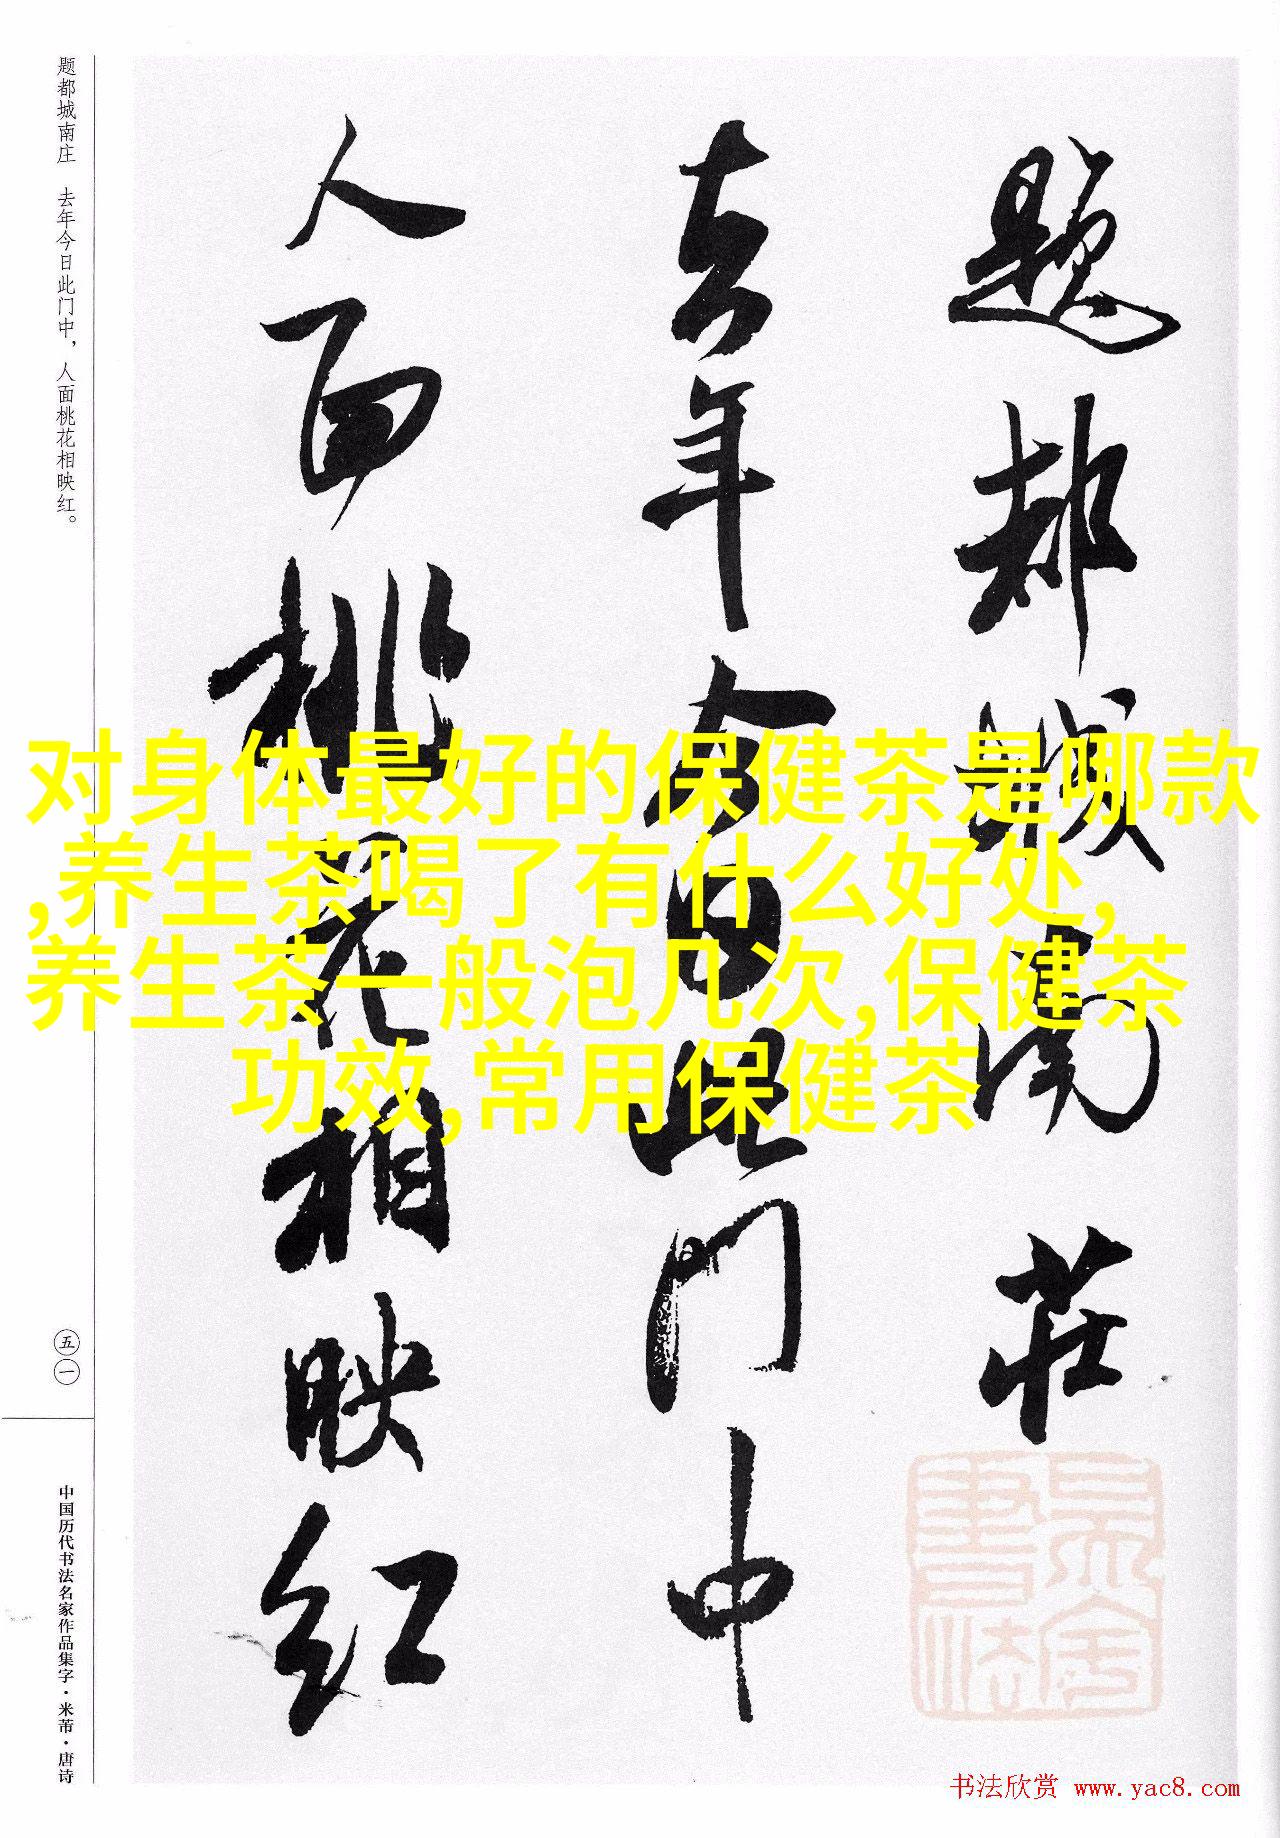 题都城南庄 去年今日此门中，人面桃花相映红。
題都城南莊
去年今日此門中
人面桃花相映红
对身体最好的保健茶是哪款
,养生茶喝了有什么好处,
养生茶一般泡几次,保健茶
功效,常用保健茶
五一
中国历代书法名家作品集字·米芾·唐诗
书法欣赏 www.yac8.com